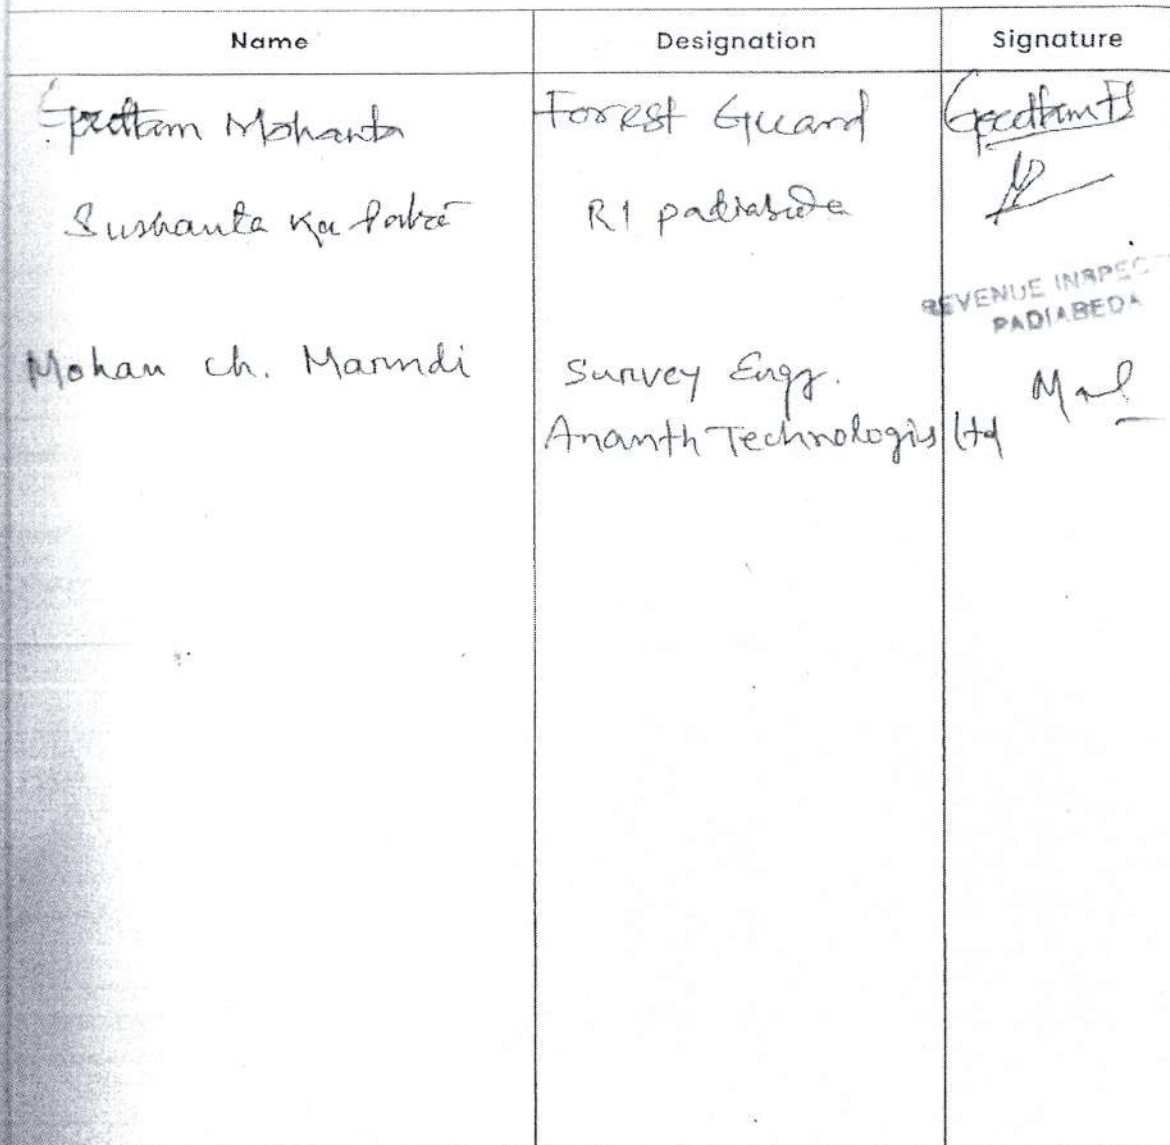 Name Designation Signature
Goutam Mohanta Forest Guard
Sushanta Ku Patra RI padiabeda
REVENUE INSPEC
PADIABEDA
Mohan Ch. Marndi Survey Engg.
Ananth Technologis Ltd